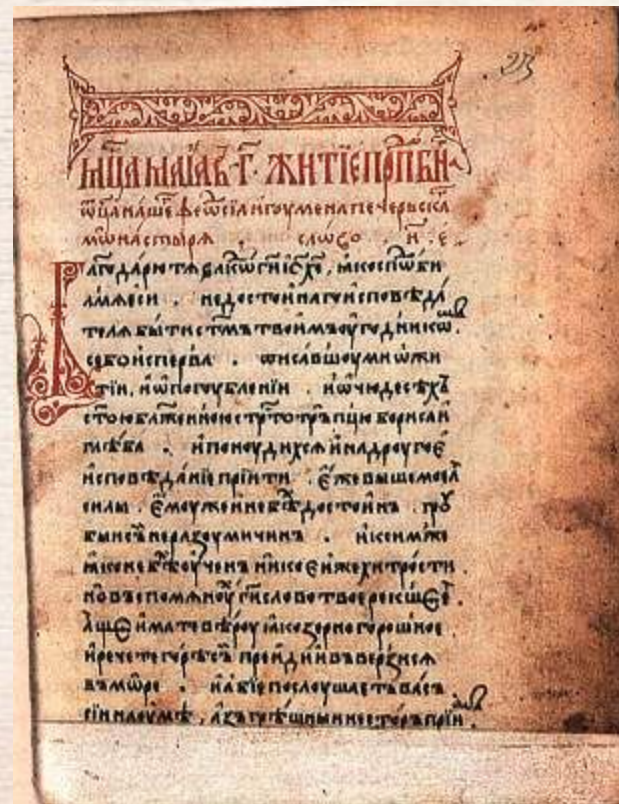 мц҃а маїа въ г҃ житїе прп҃бн
ѿц҃а нашег҃ ѳеѡ҃сїа игоумена печерьскаг҃
мѡнастырѧ , слѡво . н҃ . е
лг҃одарю тѧ влк҃о гн҃ іс҃ хе҃ , ꙗко спѡ҃би
лъ мѧ еси . недостойнаго исповѣда
телѧ быти ст҃мъ твоимъ оугодникѡ .
се бо исперва . писавшоу ми ѡ жи
тїи , и ѡ погоублении . и ѡ чюдесѣхъ
ст҃ою блаженною стрт҃отръпцю бориса и
глѣба . и поноудихсѧ и на дроугое
исповѣданїе прїити . еже выше моеа
силы . емоу же и не бѣ достоинъ . гроу
бъ и сы неразоумиченъ . къ симъ же
ꙗко не бѣ оученъ никоеиже хитрости
но въспомѧноу гн҃ слово твое рекшее .
аще имате вѣроу ꙗко зерно горошное
и речете горѣ сеи преиди и въверзисѧ
въ море . и абїе послоушаеть васъ
сїи на оумѣ , азъ грѣшныи несторъ прїи